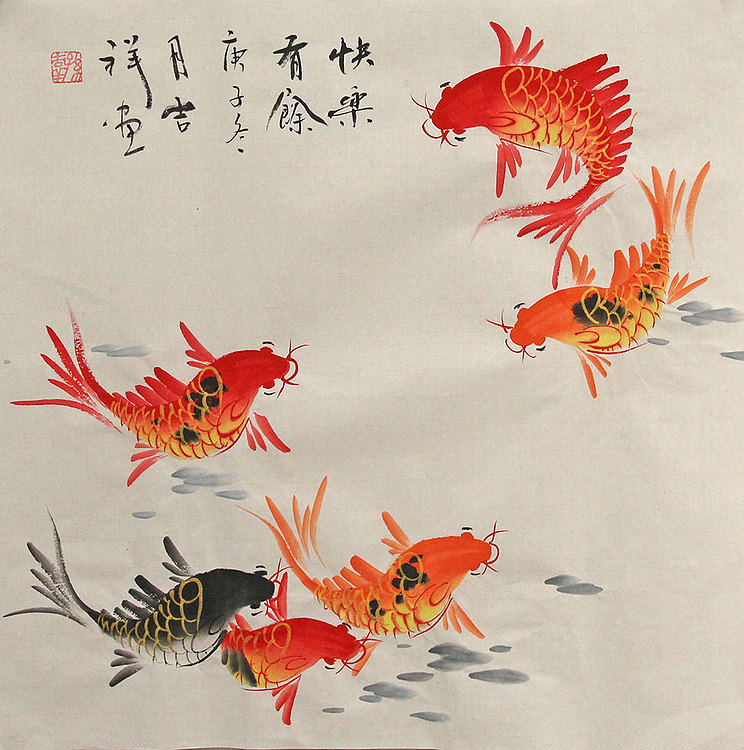 快樂
有餘
庚子冬
月吉
祥画